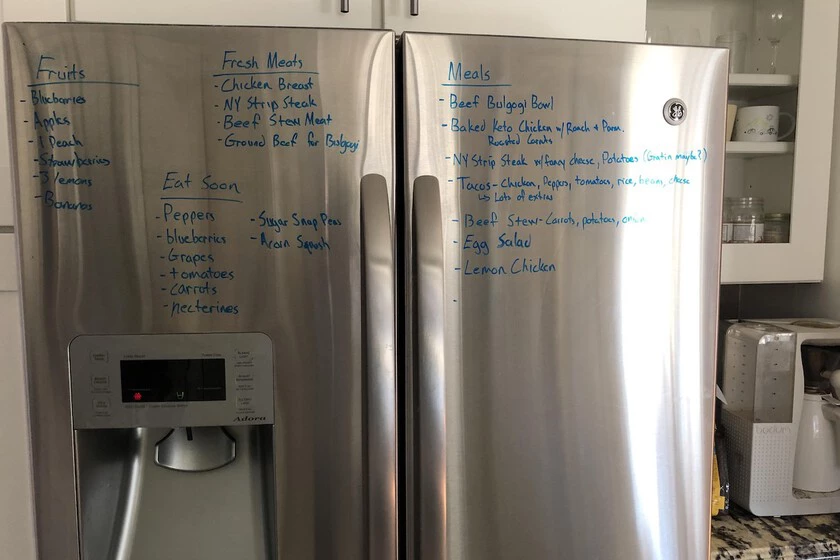 Fruits
- Blueberries
- Apples
- 1 Peach
- Strawberries
- 3 lemons
- Bananas
Fresh Meats
- Chicken Breast
- NY Strip Steak
- Beef Stew Meat
- Ground Beef for Bulgogi
Eat Soon
- Peppers
- blueberries
- Grapes
- tomatoes
- carrots
- necterines
- Sugar Snap Peas
- Acorn Squash
Meals
- Beef Bulgogi Bowl
- Baked Keto Chicken w/ Ranch + Parm.
Roasted Carrots
- NY Strip Steak w/ fancy cheese, Potatoes (Gratin maybe?)
- Tacos - Chicken, Peppers, tomatoes, rice, beans, cheese
↳ Lots of extras
- Beef Stew - Carrots, potatoes, onion
- Egg Salad
- Lemon Chicken
-
GE
Adora
bodum